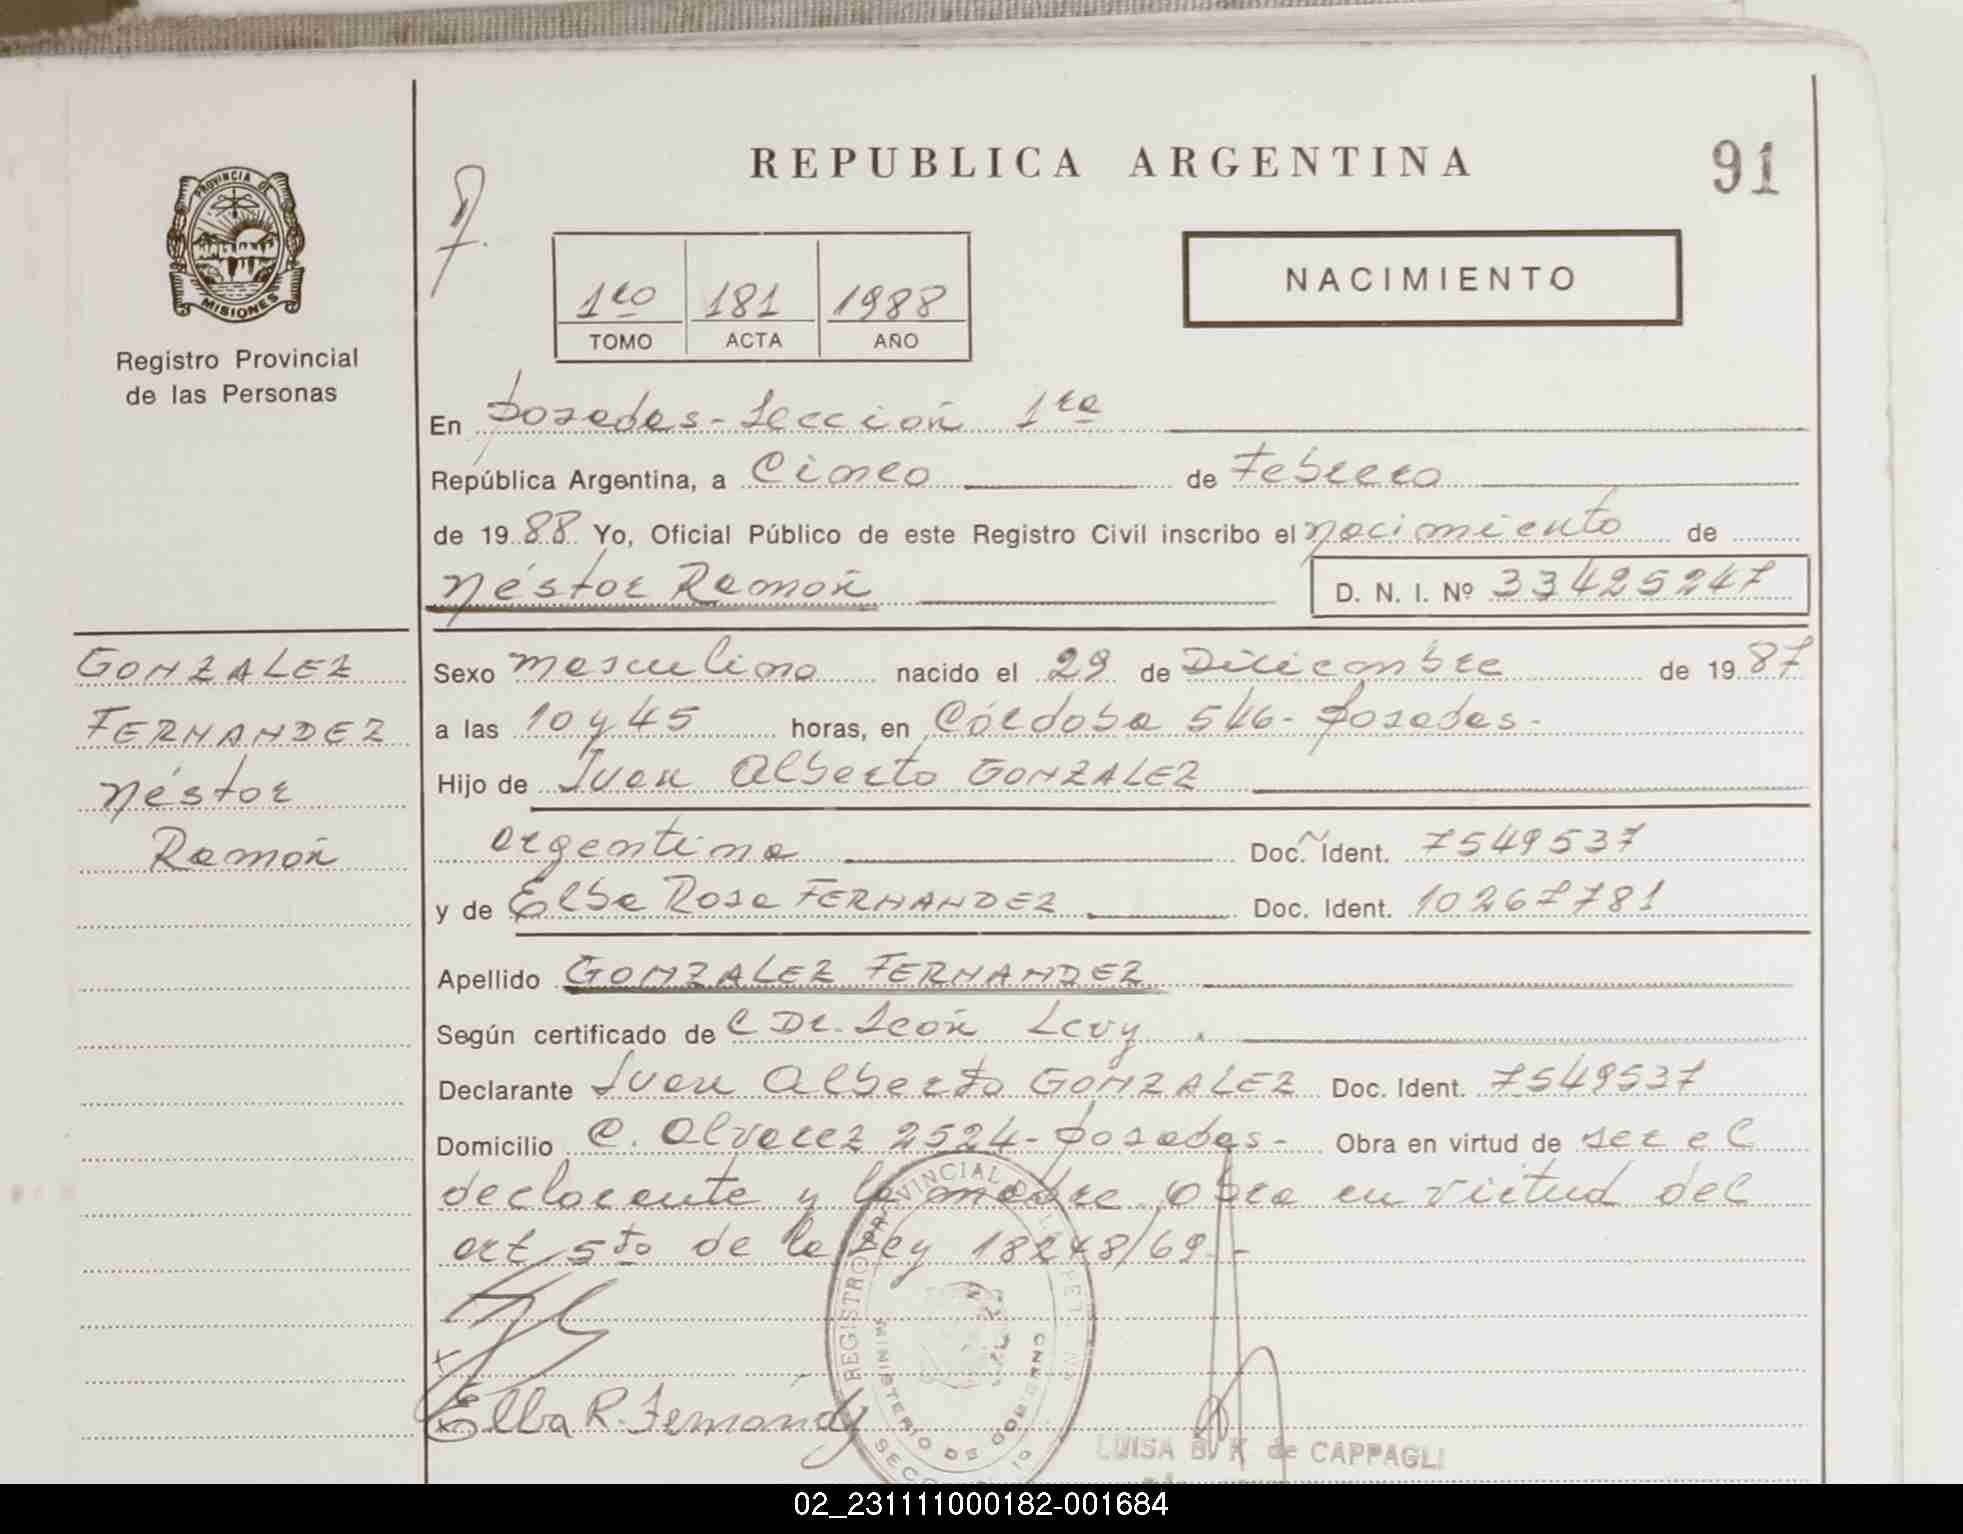 REPUBLICA ARGENTINA
91
PROVINCIA DE
MISIONES
Registro Provincial
de las Personas
1ro 181 1988
TOMO ACTA AÑO
NACIMIENTO
En Posadas - Sección 1ra
República Argentina, a Cinco de Febrero
de 1988 Yo, Oficial Público de este Registro Civil inscribo el nacimiento de
Néstor Ramón D. N. I. Nº 33425247
GONZALEZ
FERNANDEZ
Néstor
Ramón
Sexo masculino nacido el 29 de Diciembre de 1987
a las 10 y 45 horas, en Córdoba 546 - Posadas -
Hijo de Juan Alberto GONZALEZ
argentino Doc. Ident. 7549537
y de Elba Rosa FERNANDEZ Doc. Ident. 10267781
Apellido GONZALEZ FERNANDEZ
Según certificado de Dr. León Levy
Declarante Juan Alberto GONZALEZ Doc. Ident. 7549537
Domicilio C. Alvarez 2524 - Posadas - Obra en virtud de ser el
declarante y la madre obra en virtud del
art 5to de la ley 18248/69 -
Elba R. Fernández
REGISTRO PROVINCIAL DE
MINISTERIO DE GOBIERNO
LUISA B. K de CAPPAGLI
02_231111000182-001684